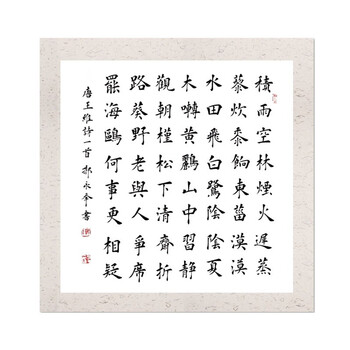 積雨空林煙火遲蒸
藜炊黍餉東菑漠漠
水田飛白鷺陰陰夏
木囀黃鸝山中習靜
觀朝槿松下清齋折
路葵野老與人爭席
罷海鷗何事更相疑
唐王維詩一首 永 書